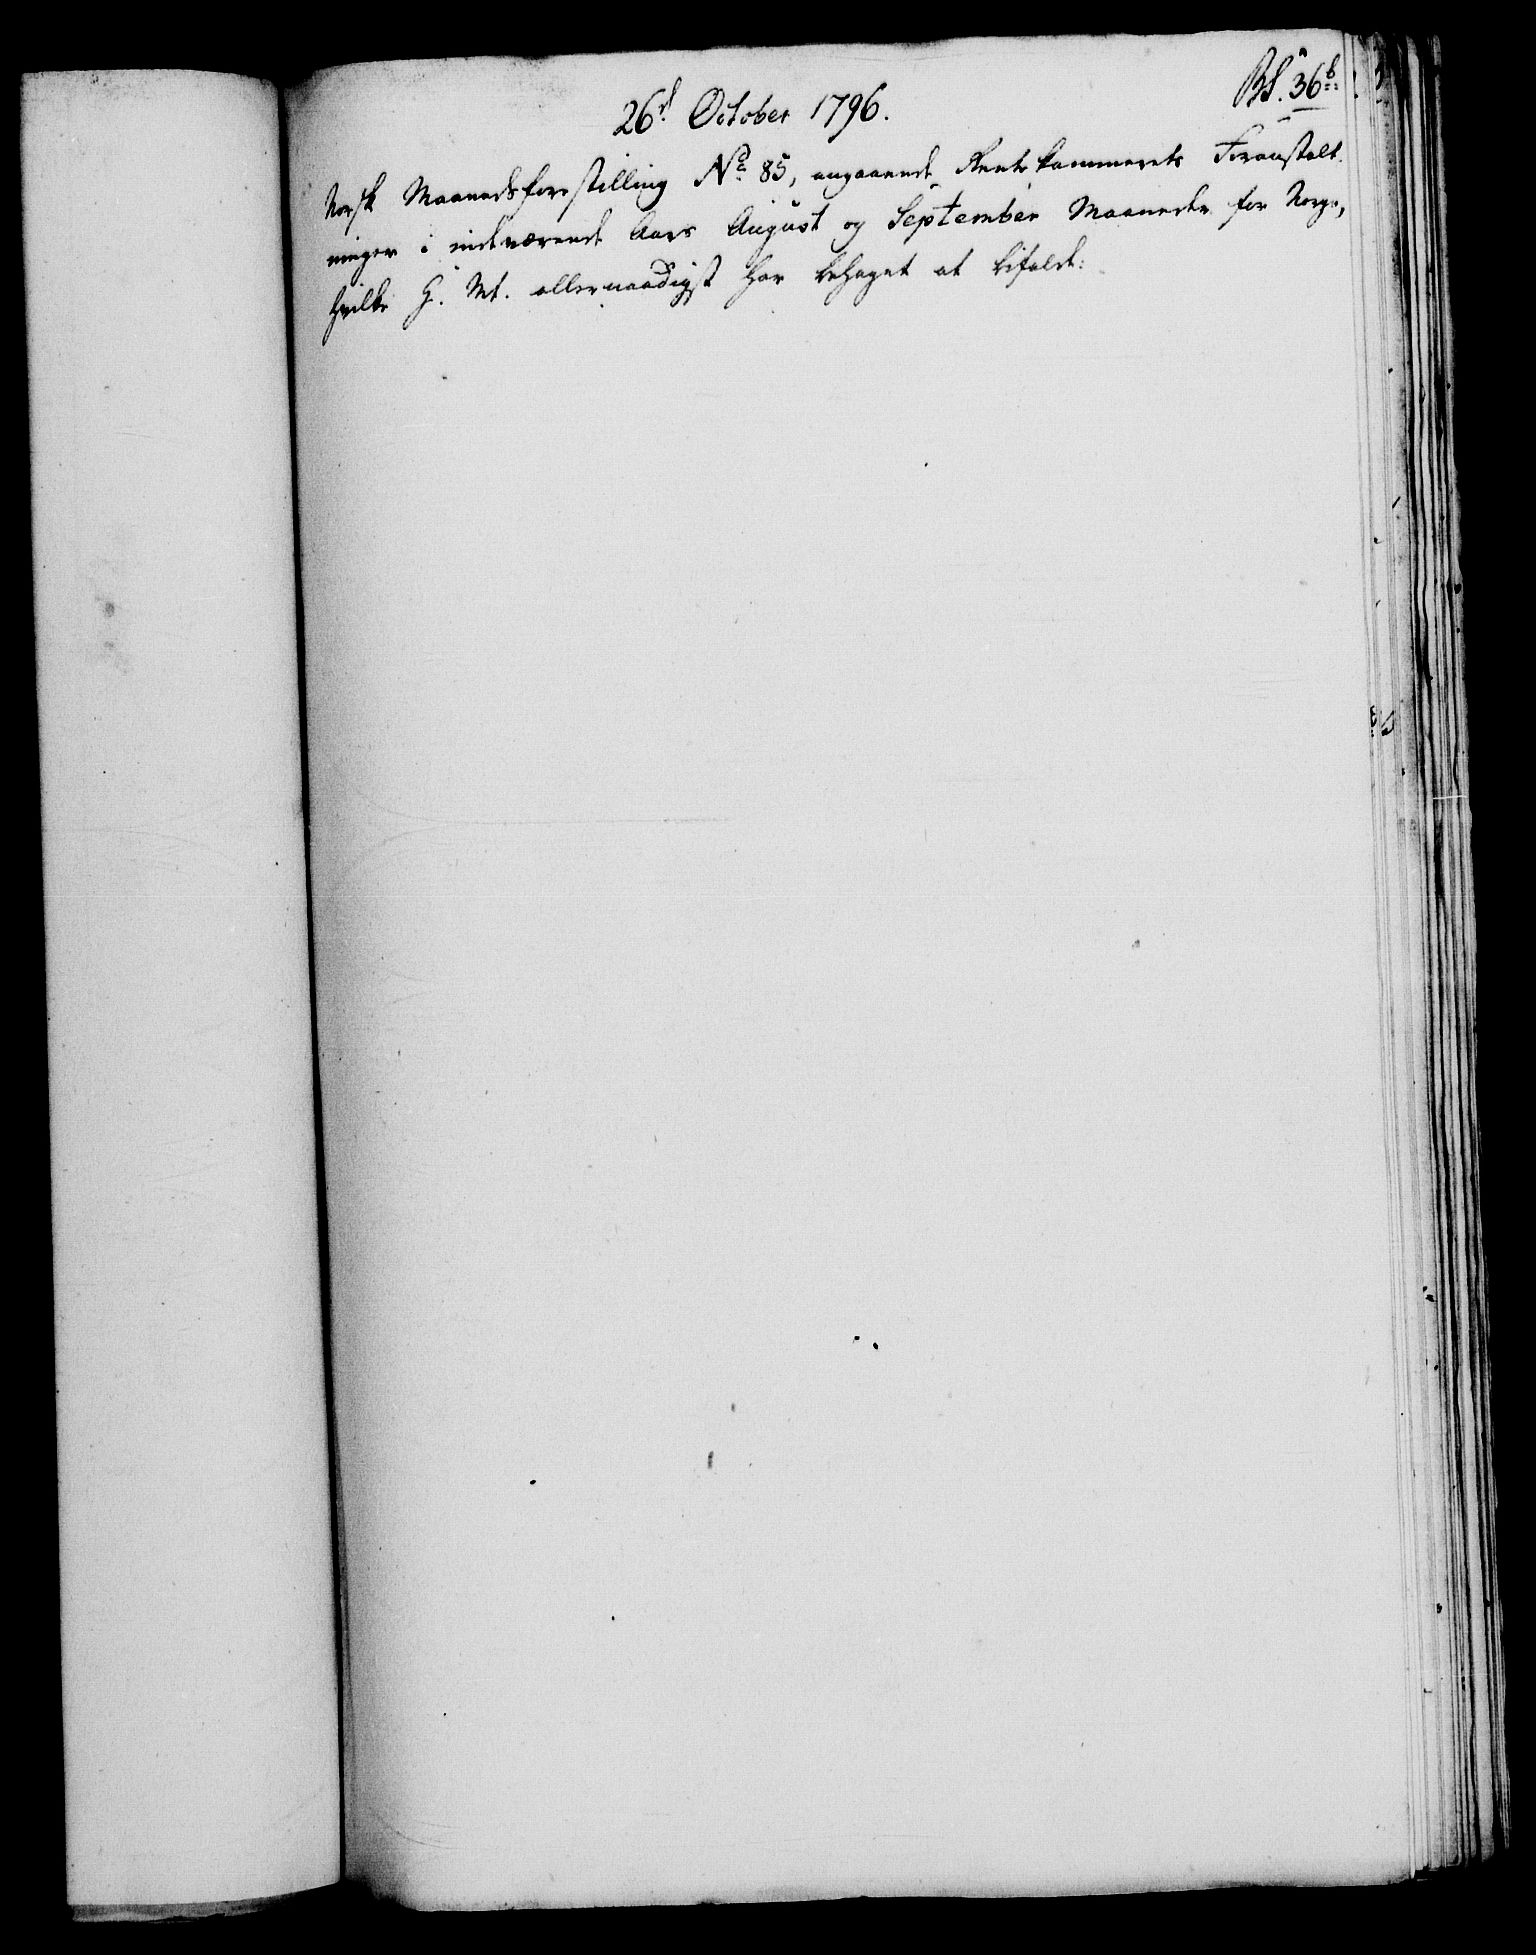 26d October 1796.
BS. 36b
Norsk Maanedsforestilling No 85, angaaende Rentekammerets Foranstalt-
ninger i indeværende Aars August og September Maaneder for Norge,
hvilke H. Mt. allernaadigst har behaget at bifalde: